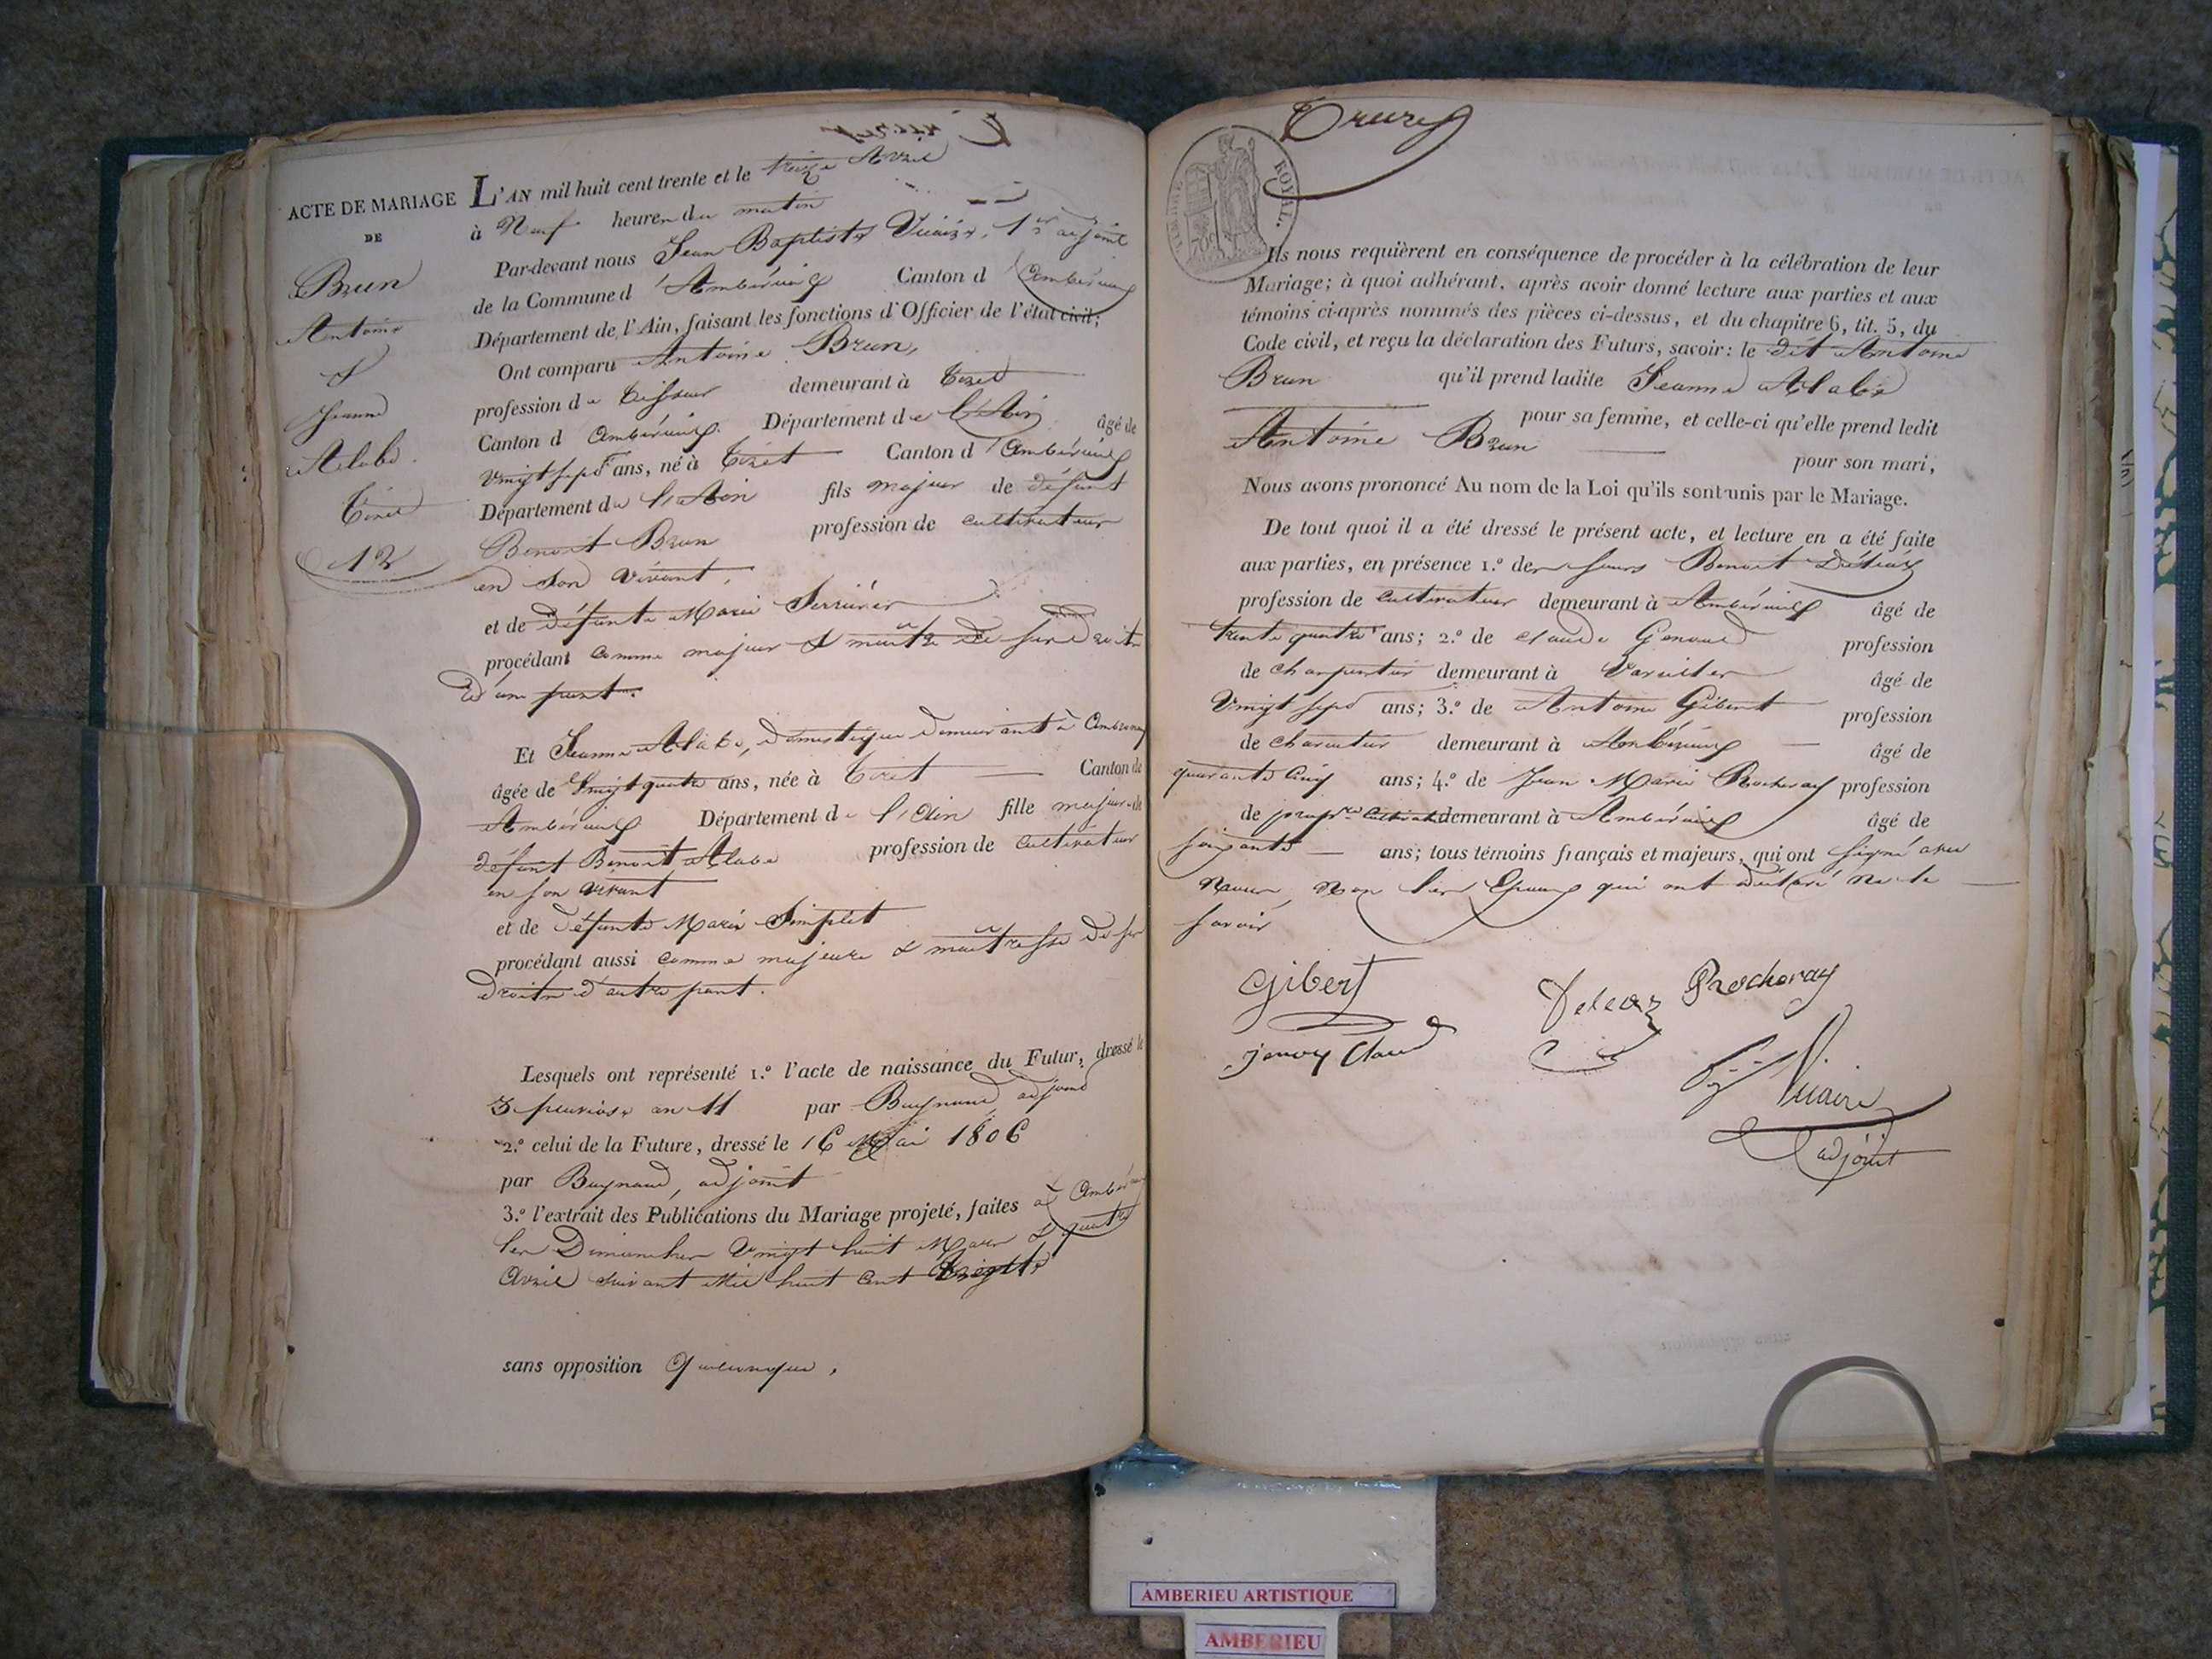 ACTE DE MARIAGE
DE
Brun
Antoine
&
Jeanne
Alabe
Tiret
12
L'AN mil huit cent trente et le treize Avril
à Neuf heures du matin
Par-devant nous Jean Baptiste Vicaire, 1er adjoint
de la Commune d'Ambérieux Canton d'Ambérieux
Département de l'Ain, faisant les fonctions d'Officier de l'état civil;
Ont comparu Antoine Brun,
profession de tisseur demeurant à Tiret
Canton d'Ambérieux Département de l'Ain âgé de
vingt sept ans, né à Tiret Canton d'Ambérieux
Département de l'Ain fils majeur de défunt
Benoit Brun profession de cultivateur
en son vivant,
et de défunte Marie
procédant comme majeur & maître de ses droits
d'une part.
Et Jeanne Alabe, domestique demeurant à Ambronay
âgée de Vingt quatre ans, née à Tiret Canton de
Ambérieux Département de l'Ain fille majeure de
défunt Benoit Alabe profession de cultivateur
en son vivant
et de défunte Marie Simplet
procédant aussi comme majeure & maîtresse de ses
droits d'autre part.
Lesquels ont représenté 1.° l'acte de naissance du Futur, dressé le
3 pluviose an 11 par Buynand adjoint
2.° celui de la Future, dressé le 16 Mai 1806
par Buynand, adjoint
3.° l'extrait des Publications du Mariage projeté, faites à Ambérieux
les Dimanches Vingt huit Mars & quatre
Avril suivant Mil huit cent trente
sans opposition Quelconque,
TIMBRE ROYAL.
70c
Ils nous requièrent en conséquence de procéder à la célébration de leur
Mariage; à quoi adhérant, après avoir donné lecture aux parties et aux
témoins ci-après nommés des pièces ci-dessus, et du chapitre 6, tit. 5, du
Code civil, et reçu la déclaration des Futurs, savoir: le dit Antoine
Brun qu'il prend ladite Jeanne Alabe
pour sa femme, et celle-ci qu'elle prend ledit
Antoine Brun pour son mari,
Nous avons prononcé Au nom de la Loi qu'ils sont unis par le Mariage.
De tout quoi il a été dressé le présent acte, et lecture en a été faite
aux parties, en présence 1.° des sieurs Benoit
profession de cultivateur demeurant à Ambérieux âgé de
trente quatre ans; 2.° de Claude profession
de charpentier demeurant à Vareilles âgé de
Vingt sept ans; 3.° de Antoine Gibert profession
de demeurant à Ambérieux âgé de
quarante cinq ans; 4.° de Jean Marie Rocheray profession
de propre cultivatr demeurant à Ambérieux âgé de
soixante ans; tous témoins français et majeurs, qui ont signé avec
Nous, Non les Epoux qui ont déclaré ne le
savoir
Gibert
Rocheray
Vicaire
adjoint
AMBERIEU ARTISTIQUE
AMBERIEU